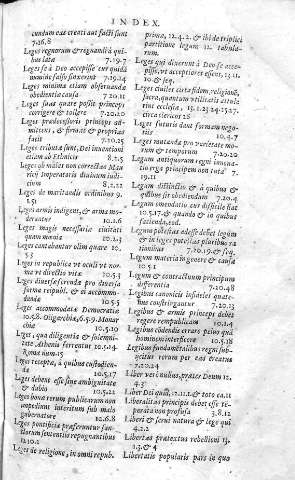 INDEX.
cundum eas creati aut facti sunt
7.16,8
Leges regnorum & regnandi à qui-
bus lata 7.19.7
Leges se à Deo accepisse cur quidã
monine falso finxerint 7.19.24
Leges minima etiam obseruanda
obedientia causa 7.20.11
Leges suas quare possit princeps
corrigere & tollere 7.20.20
Leges prædecessoris princeps ad-
mittens, & firmat & proprias
facit 7.20.25
Leges tributa sunt, Dei inuentioni
etiam ab Ethnicis 8.2.5
Leges ob malitia non correctas Mau
ricij Imperatoris diuinum iudi-
cium 8,2,22
Leges de maritandis ordinibus 9.
1.51
Leges armis indigent, & arma mo-
derantur 10.2.6
Leges magis necessariæ ciuitati
quam mœnia 10.2.3
Leges cantabantur olim quare 10.
5.3
Leges in republica vt oculi vt nor-
ma vt directio vita 10.5.3
Leges diuersæ ferenda pro diuersa
forma reipubl. & ei accommo-
danda 10.5.5
Leges accommodatæ Democratiæ
10.5.8. Oligarchia,6.5.9. Monar
chia 10.5.10
Leges, qua diligentia & solemni-
tate Athenis ferrentur 10.1.14
Romæ num.15
Leges recepta, à quibus custodien-
da 10.5.17
Leges debent esse sine ambiguitate
& dubio 10.5.21
Leges bona rerum publicarum non
impediunt interitum sub malo
gubernatore 10.6.8
Leges pontificia præferuntur san-
ctorum sententijs repugnantibus
12.10.2
Leges de religione, in omni repub.
prima, 12.4.2. & ibi de triplici
partitione legum 12. tabula-
rum.
Leges qui dixerunt à Deo se acce-
pisse, vt acceptiores essent, 13.11
10. & seq.
Leges ciuiles circa fidem, religionẽ,
sacra, quantum vtilitatis attule
rint ecclesia, 15.1.23.24.25.27.
circa clericos 28
Leges futuris dant formam nego-
tijs 10.5.7
Leges mutanda pro varietate mo-
rum & temporum 7.20.20
Legum antiquorum regni innoua-
tio erga principem non tuta 7.
19.21
Legum distinctio & à quibus &
quibus sit obediendum 7.20.4
Legum emendatio cur difficilis sit
10.5.17, & quando & in quibus
facienda, eod.
Legum potestas adesse debet legum
& in leges potestas pluribus ra
tionibus 7.20.19. & seq.
Legum materia in genere & causa
10.5.1
Legum & contractuum principum
differentia 7.20.48
Legibus canonicis infideles quare
non constringantur 7.20.13
Legibus & armis princeps debet
regere rempublicam 10.1.4
Legibus codendis errare peius quã
homines interficere 10.5.18
Legibus fundamẽtalibus regni sub-
ijcitur rerum per eas creatus
7.20.24
Liber verè nullus, præter Deum 12.
4.3.
Liber Dei quis, 12.11.2. & toto ca. 11
Liberalitas principis debet esse tẽ-
perata non profusa 3.8.12
Liberi & serui natura & lege qui
4.2.2
Libertas prætextus rebellioni 13.
1.3.& 4
Libertatis popularis pars se quo